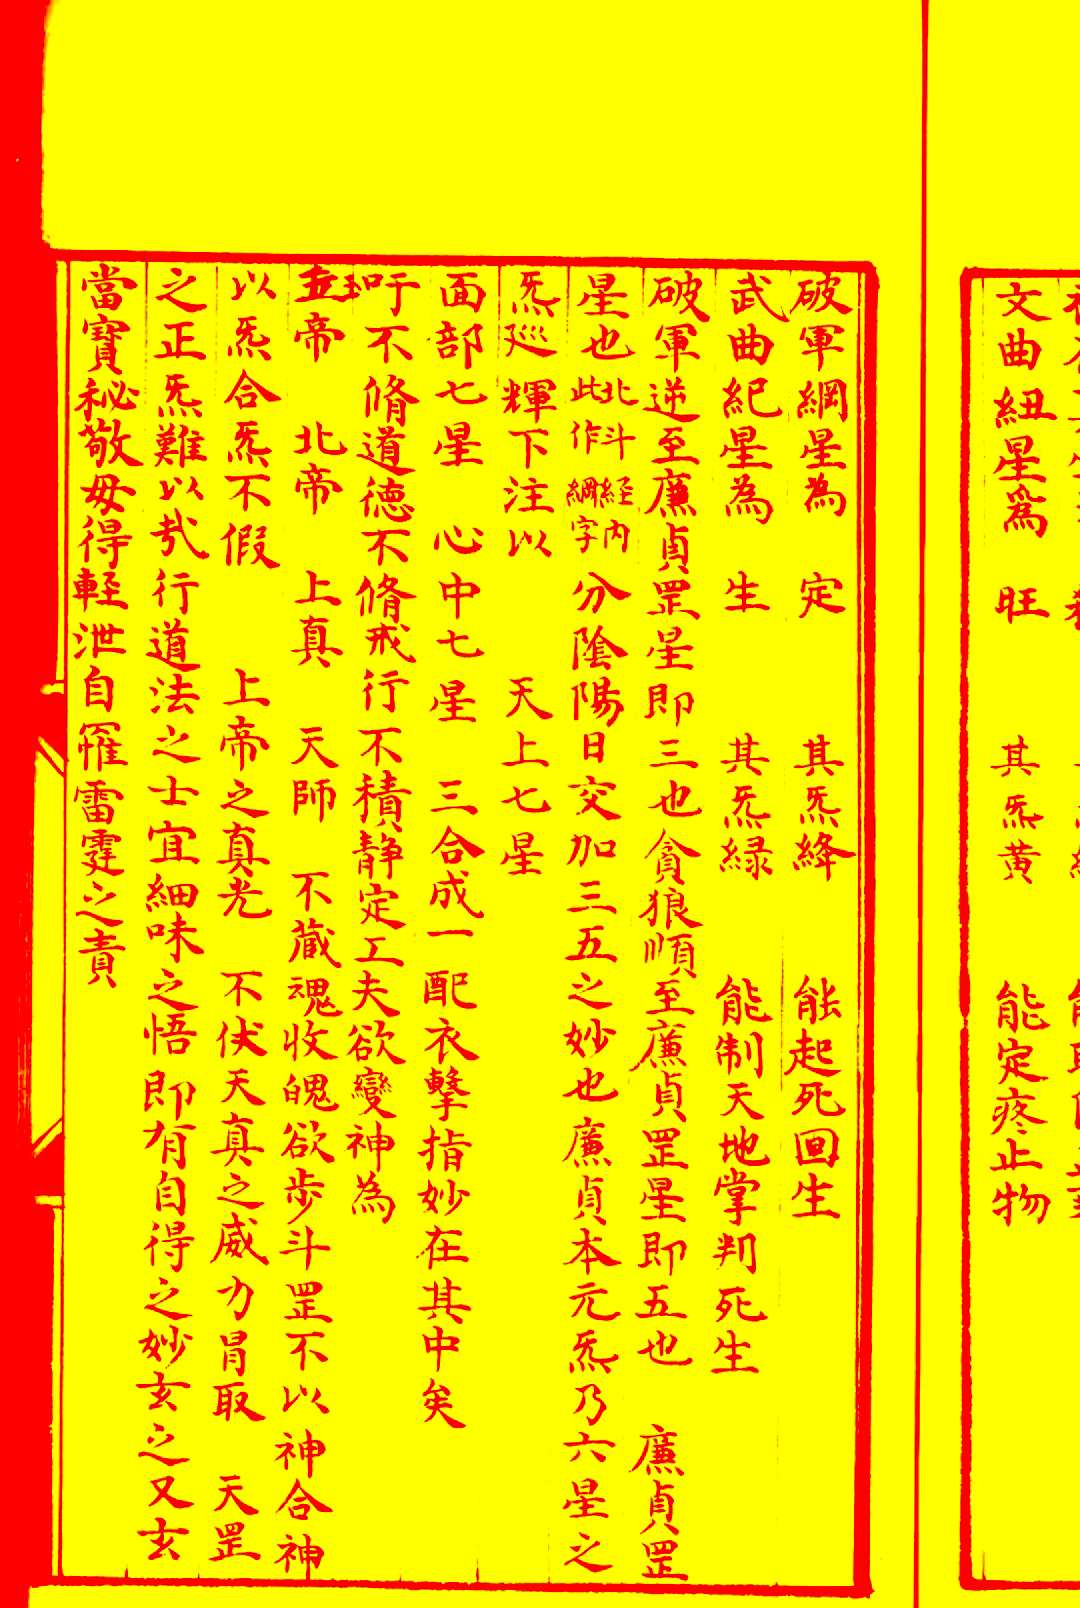 文曲紐星爲　旺　其炁黃　能定疼止物
破軍綱星為　定　其炁絳　能起死回生
武曲紀星為　生　其炁緑　能制天地掌判死生
破軍逆至廉貞罡星即三也貪狼順至廉貞罡星即五也　廉貞罡
星也北斗經內此作綱字分陰陽日交加三五之妙也廉貞本元炁乃六星之
炁巡輝下注以　天上七星
面部七星　心中七星　三合成一配衣擊指妙在其中矣
吁不脩道德不脩戒行不積静定工夫欲變神為
玉帝　北帝　上真　天師　不蔵魂收魄欲步斗罡不以神合神
以炁合炁不假　上帝之真光　不伏天真之威力冒取　天罡
之正炁難以哉行道法之士宜細味之悟即有自得之妙玄之又玄
當寶秘敬毋得輕泄自罹雷霆之責